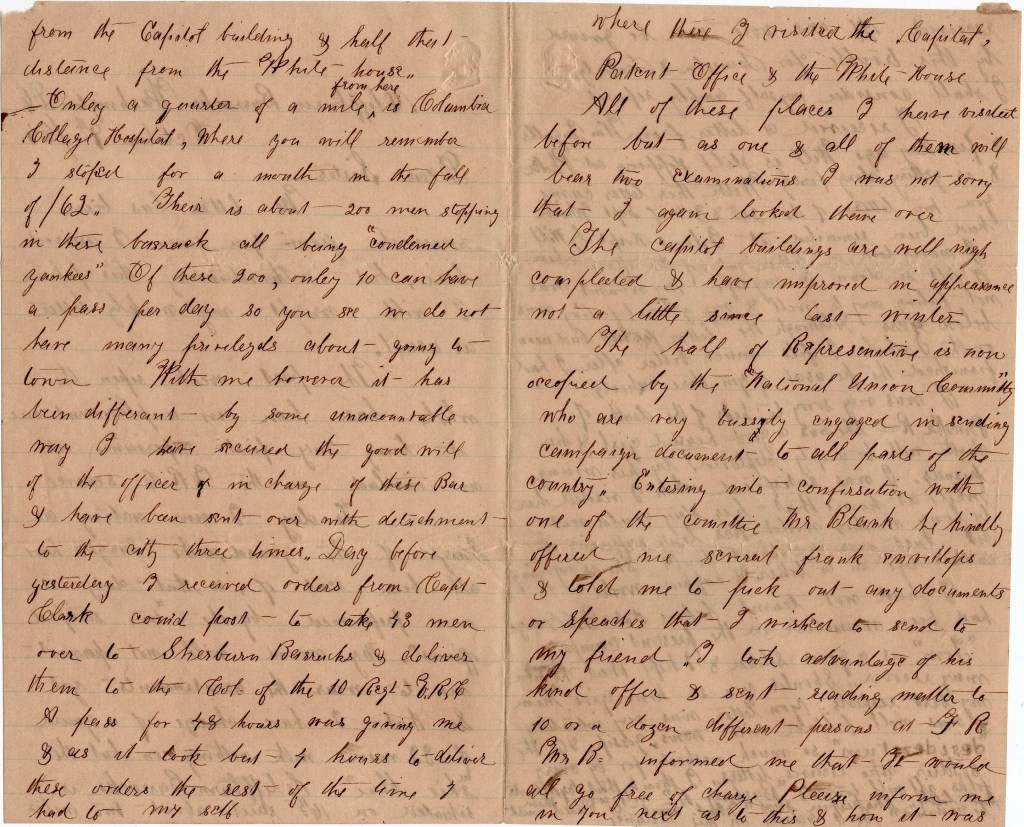 from the Capitol building & half that
distance from the White house.
from here
Onley a quarter of a mile, is Columbia
Collage Hospital, Where you will remember
I stoped for a month in the fall
of /62. Their is about 200 men stopping
in these barrack all being "condemed
yankees" Of these 200, onley 10 can have
a pass per day so you see we do not
have many privilegds about going to
town With me however it has
been differant by some unacountable
way I have secured the good will
of the officer in charge of these Bar
& have been sent over with detachment
to the city three times. Day before
yesterday I received orders from Capt
Clark post to take 43 men
over to Sherburn Barrucks & deliver
them to the Col. of the 10 Regt
A pass for 48 hours was giving me
& as it took but 4 hours to deliver
these orders the rest of the time I
had to my self
where there I visited the Capital,
Patent Office & the White House
All of these places I have visited
before but as one & all of them will
bear two examinations I was not sorry
that I again looked them over
The capitol buildings are well nigh
compleeted & have improved in appearance
not a little since last winter
The hall of Representitive is now
occopied by the "National Union Committy
who are very bussily engaged in sending
campaign document to all parts of the
country. Entering into confirsation with
one of the comittie Mr Blank he kindly
offered me several frank envillops
& told me to pick out any documents
or speaches that I wished to send to
my friend. I took advantage of his
kind offer & sent reading matter to
10 or a dozen different persons at F R
Mr B= informed me that It would
all go free of charge Pleeze inform me
in you next as to this & how it was